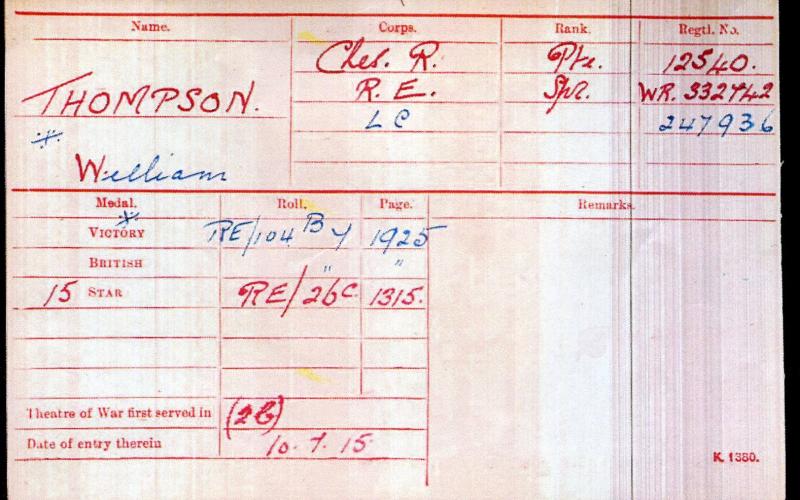 Name. Corps. Rank. Regtl. No.
THOMPSON. Ches. R. Pte. 12540.
R. E. Spr. WR. 332742
L C 247936
William
Medal. Roll. Page. Remarks.
VICTORY RE/104 B 1925
BRITISH " "
15 STAR RE/26C. 1315.
Theatre of War first served in (2b)
Date of entry therein 10.7.15
K. 1380.